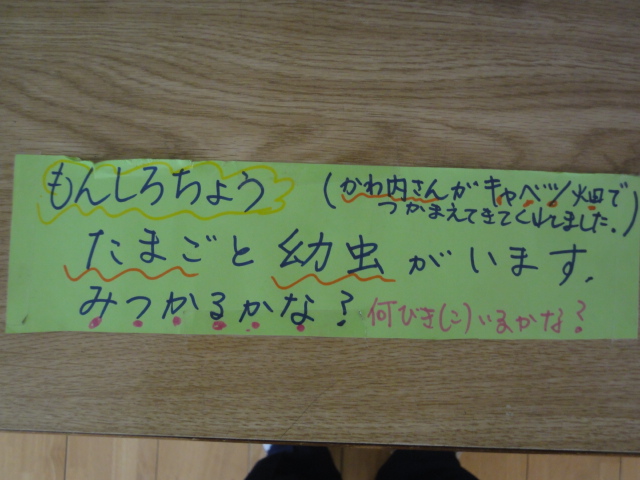 もんしろちょう
(かわ内さんがキャベツ畑で
つかまえてきてくれてました.)
たまごと幼虫がいます.
みつかるかな?
何びき(こ)いるかな?